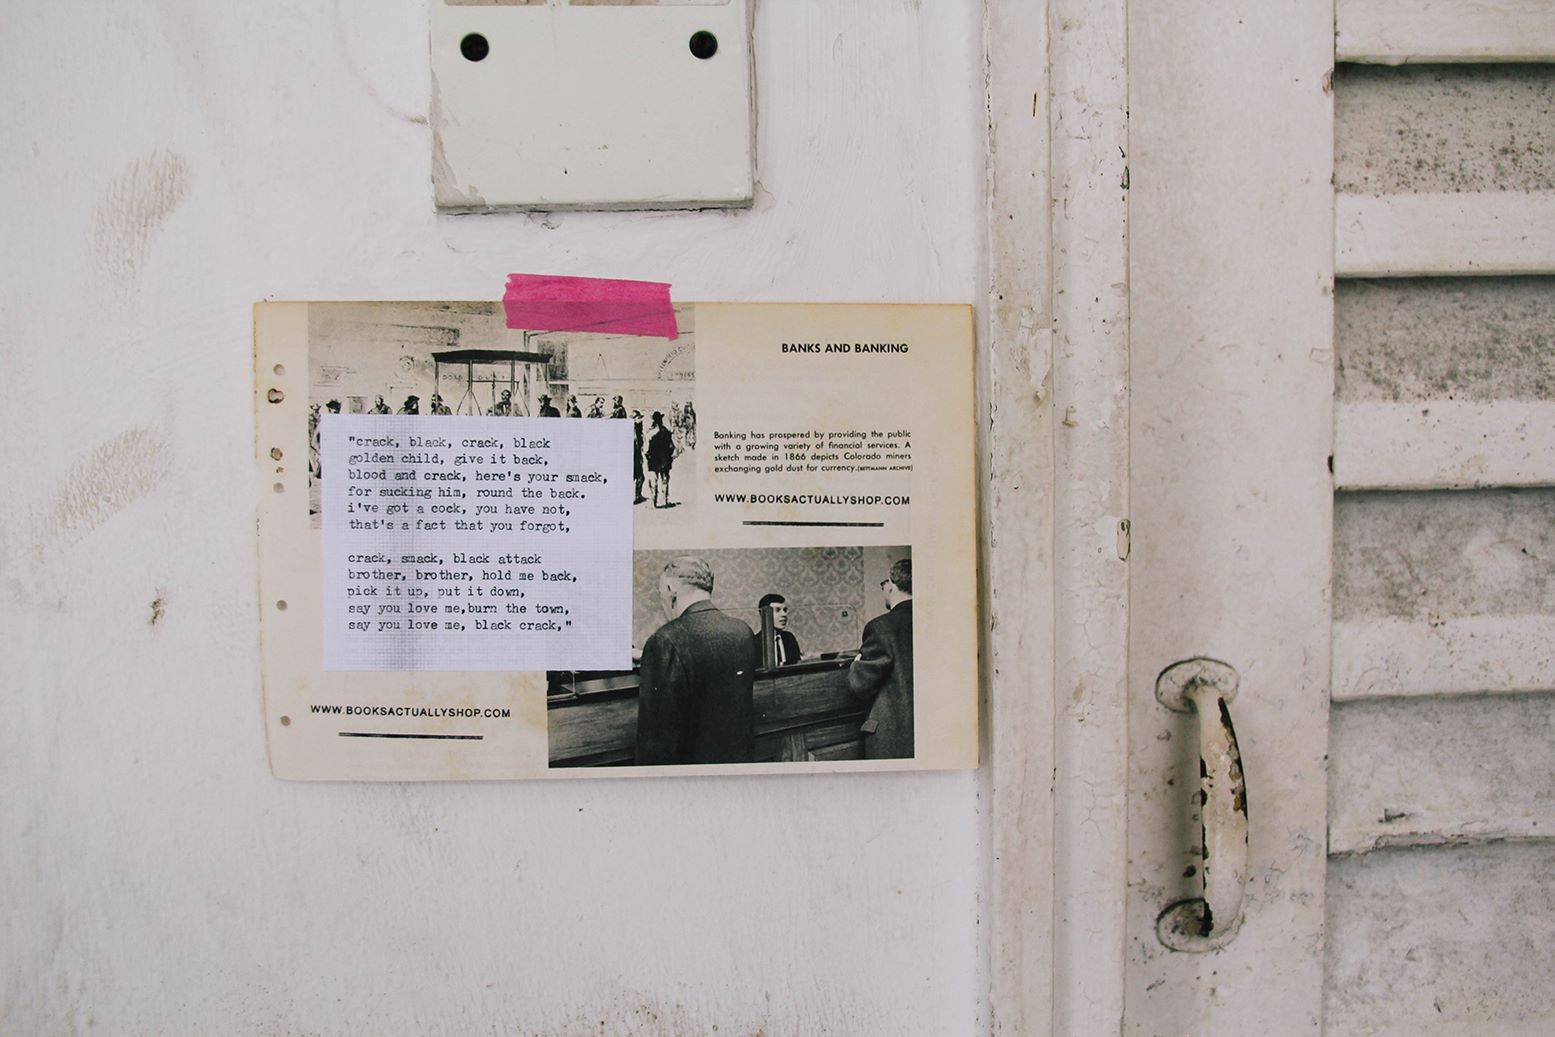 BANKS AND BANKING
Banking has prospered by providing the public
with a growing variety of financial services. A
sketch made in 1866 depicts Colorado miners
exchanging gold dust for currency.(BETTMANN ARCHIVE)
WWW.BOOKSACTUALLYSHOP.COM
"crack, black, crack, black
golden child, give it back,
blood and crack, here's your smack,
for sucking him, round the back.
i've got a cock, you have not,
that's a fact that you forgot,
crack, smack, black attack
brother, brother, hold me back,
pick it up, put it down,
say you love me,burn the town,
say you love me, black crack,"
WWW.BOOKSACTUALLYSHOP.COM